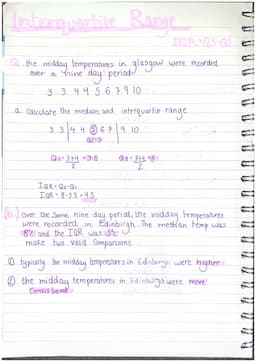 Interquartile Range
IQR = Q3-Q1
Q. the midday temperatures in glasgow were recorded
over a 'nine day' period
3 3 4 4 5 6 7 9 10
a. Calculate the median and interquartile range
3 3 | 4 4 5 6 7 | 9 10
Q2=5
Q1= 3+4 = 3.5 Q3= 7+9 = 8
2 2
IQR = Q3-Q1
IQR = 8-3.5 = 4.5
(b.) over the same nine day period, the midday temperatures
were recorded in Edinburgh. The median temp was
8°c and the IQR was
make two valid comparisons
① typically the midday temperatures in Edinburgh were higher
② the midday temperatures in Edinburgh were more
consistent